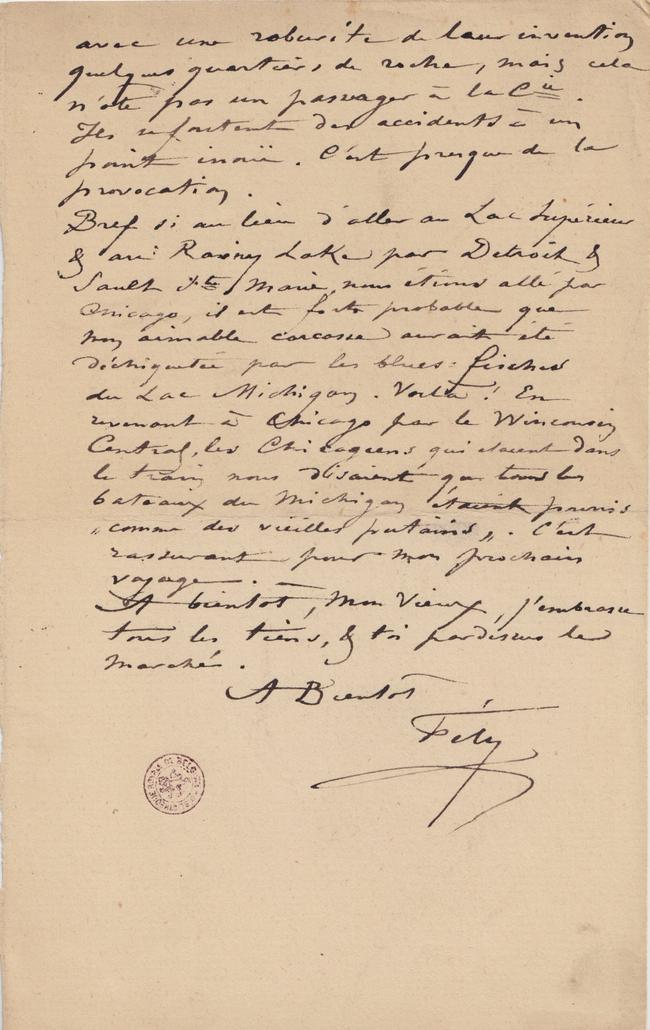 avec une roburite de leur invention
quelques quartiers de roche, mais cela
n'ôte pas un passager à la Cie.
Ils se foutent des accidents à un
point inouï. C'est presque de la
provocation.
Bref si au lieu d'aller au Lac Supérieur
& au Rainy Lake par Detroit &
Sault Ste Marie, nous étions allé par
Chicago, il est fort probable que
mon aimable carcasse aurait été
déchiquetée par les blues-fisches
du Lac Michigan. Voilà! En
revenant à Chicago par le Winconsin
Central, les Chicagoens qui étaient dans
le train nous disaient que tous les
bateaux du Michigan étaient pourris
"comme des vieilles putains". C'est
rassurant pour mon prochain
voyage. —
A bientôt, mon Vieux, j'embrasse
tous les tiens, & toi pardessus le
marché.
A Bientôt
Fély